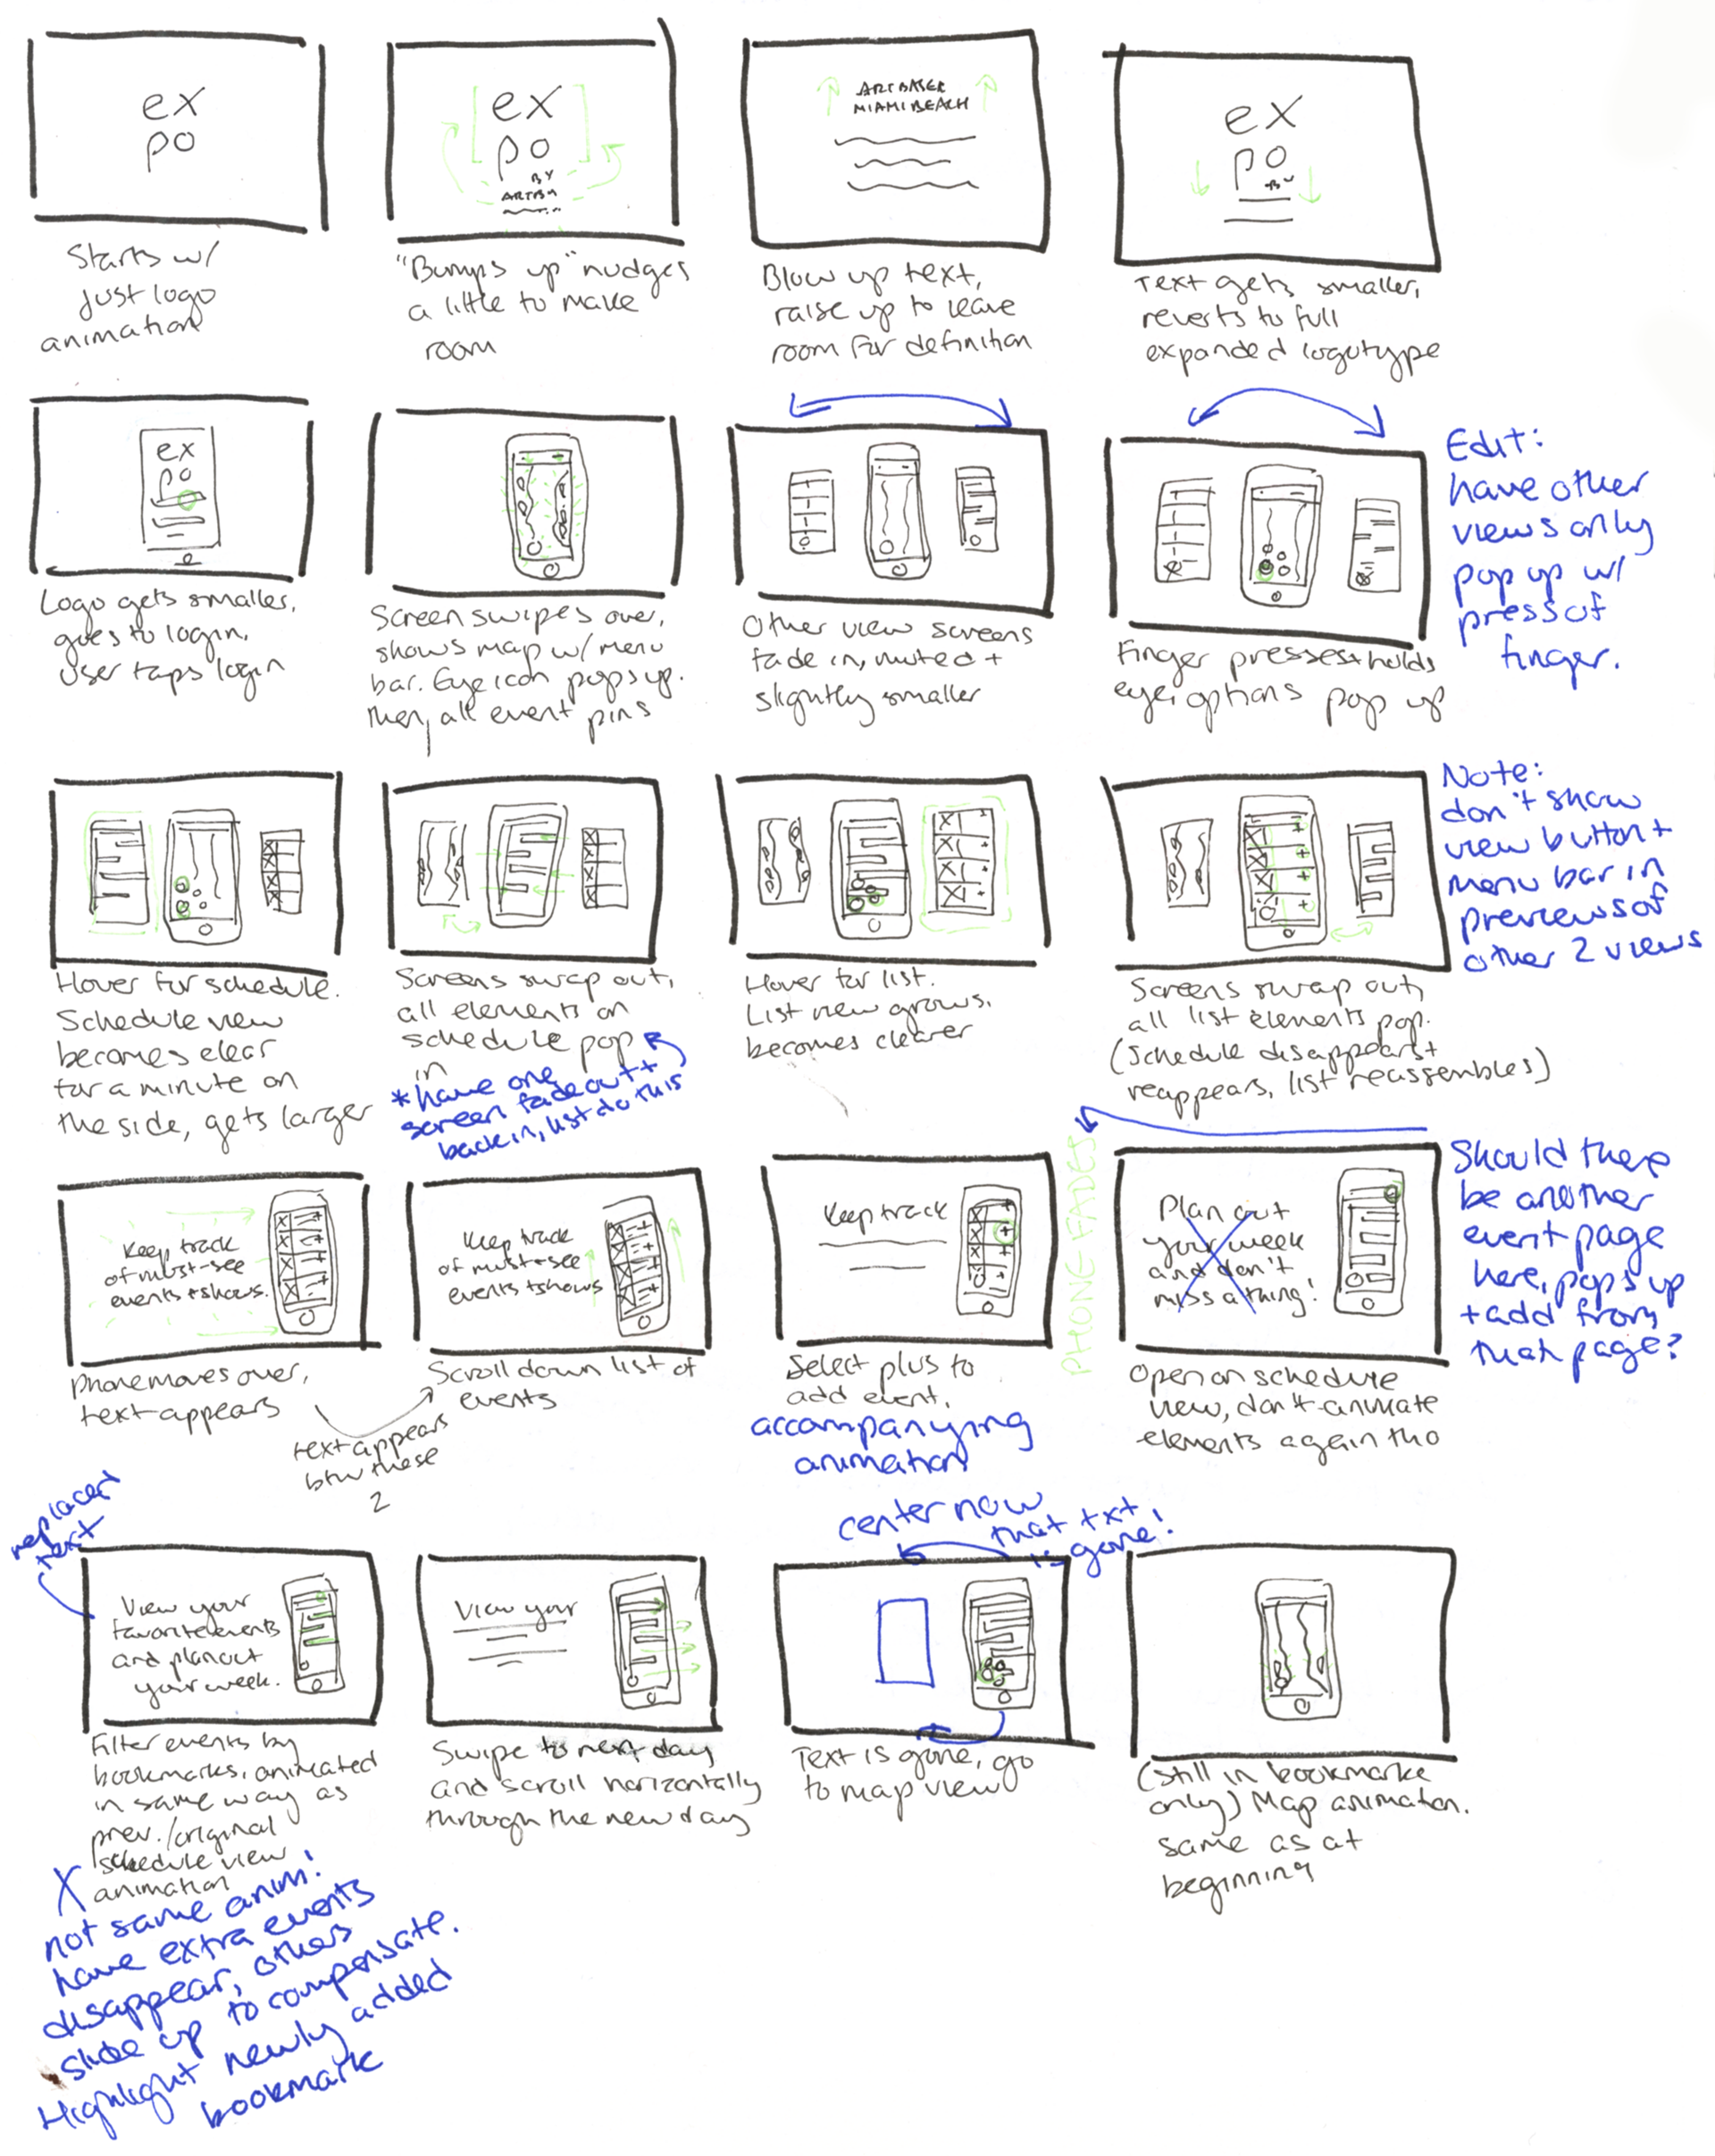 ex
po
Starts w/
just logo
animation
ex
po
BY
"Bumps up" nudges
a little to make
room
ART BASEL
MIAMI BEACH
Blow up text,
raise up to leave
room for definition
ex
po
BY
Text gets smaller,
reverts to full
expanded logotype
ex
po
Logo gets smaller,
goes to login,
user taps login
Screen swipes over,
shows map w/ menu
bar. Eye icon pops up.
then, all event pins
Other view screens
fade in, muted +
slightly smaller
Finger presses + holds
eye, options pop up
Edit:
have other
views only
pop up w/
press of
finger.
Hover for schedule.
Schedule view
becomes clear
for a minute on
the side, gets larger
Screens swap out,
all elements on
schedule pop
in
*have one
screen fade out +
back in, list do this
Hover for list.
List view grows,
becomes clearer
Screens swap out,
all list elements pop.
(schedule disappears +
reappears, list reassembles)
Note:
don't show
view button +
menu bar in
previews of
other 2 views
Keep track
of must-see
events + shows.
Phone moves over,
text appears
text appears
btw these
2
Keep track
of must-see
events + shows
Scroll down list of
events
Keep track
Select plus to
add event.
accompanying
animation
PHONE FADES
Plan out
your week
and don't
miss a thing!
Open on schedule
view, don't animate
elements again tho
Should there
be another
event page
here, pops up
+ add from
that page?
replaced
text
View your
favorite events
and plan out
your week.
Filter events by
bookmarks, animated
in same way as
prev./original
schedule view
animation
X
not same anim!
have extra events
disappear, others
slide up to compensate.
Highlight newly added
bookmark
View your
Swipe to next day
and scroll horizontally
through the new day
center now
that txt
is gone!
Text is gone, go
to map view
(still in bookmarks
only) Map animation.
same as at
beginning